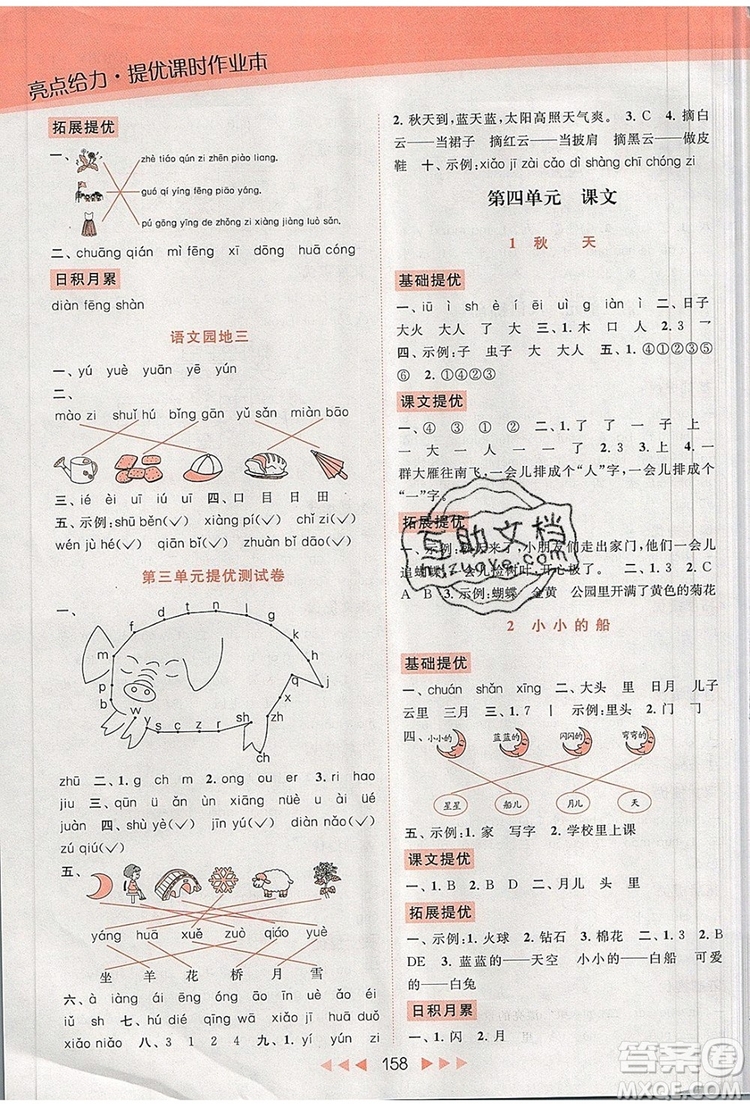 亮点给力·提优课时作业本
拓展提优
一、
zhè tiáo qún zi zhēn piào liang.
guó qí yíng fēng piāo yáng.
pú gōng yīng de zhǒng zi xiàng jiàng luò sǎn.
二、chuāng qián mì fēng xī dōng huā cóng
日积月累
diàn fēng shàn
语文园地三
一、yú yuè yuān yē yún
二、
mào zi shuǐ hú bǐng gān yǔ sǎn miàn bāo
三、ié èi uī iú uí 四、口 目 日 田
五、示例:shū běn(✓) xiàng pí(✓) chǐ zi(✓)
wén jù hé(✓) qiān bǐ(✓) diàn nǎo(✓)
第三单元提优测试卷
一、
m f d t n l g k h q j b p w y z c s r zh sh ch
zhū 二、1. g ch m r 2. ong ou er in
jiu 三、ǖn ǖ ān ùn xiāng nüè ài üé
yuán 四、shù yè(✓) jīn yú(✓) diàn nǎo(✓)
zú qiú(✓)
五、
yáng huā xuě zuò qiáo yuè
坐 羊 花 桥 月 雪
六、à iàng āi éng óng ēn iáo āng
七、zhōu hú dié qīng wā xióng māo
xiǎo niǎo 八、3 九、1. yí yún zi
2. 秋天到,蓝天蓝,太阳高照天气爽。 3. C 4. 摘白
云——当裙子 摘红云——当披肩 摘黑云——做皮
鞋 十、示例:xiǎo jī zài cǎo dì shàng chī chóng zi
第四单元 课文
1 秋 天
基础提优
一、iū ì shè è ēi uì g iān 二、日子
大火 大人 了 大 三、1. 木 口 2. 3 乛
四、示例:子 虫子 大 大人 五、1. ①②③⑤
⑥ 2. ①②③④
课文提优
一、④ ③ ① ② 二、了 了 一 子 上
一 大 一 一 人 了 三、1. 2 3 四、一
群大雁往南飞,一会儿排成个“人”字,一会儿排成个
“一”字。
拓展提优
一、示例:秋天来了,小朋友们走出家门,他们一会儿
追蝴蝶,一会儿捡树叶,开心极了。 二、1. 3 2. C
A B 3. 示例:蝴蝶 金黄 公园里开满了黄色的菊花
2 小小的船
基础提优
一、chuán shǎn xīng 二、大头 里 日月 儿子
云里 三月 三、1. 7 丨 示例:里头 2. 门 ㇆
四、
小小的 蓝蓝的 闪闪的 弯弯的
星星 船儿 月儿 天
五、示例:1. 家 写字 2. 学校里上课
课文提优
一、1. B 2. B D 二、月儿 头 里
拓展提优
一、示例:1. 火球 2. 钻石 3. 棉花 二、1. 3 2. B
DE 3. 蓝蓝的——天空 小小的——白船 可爱
的——白兔
日积月累
一、1. 闪 2. 月
158
互助文档
hjzuoye.com
答案圈
MXQE.COM